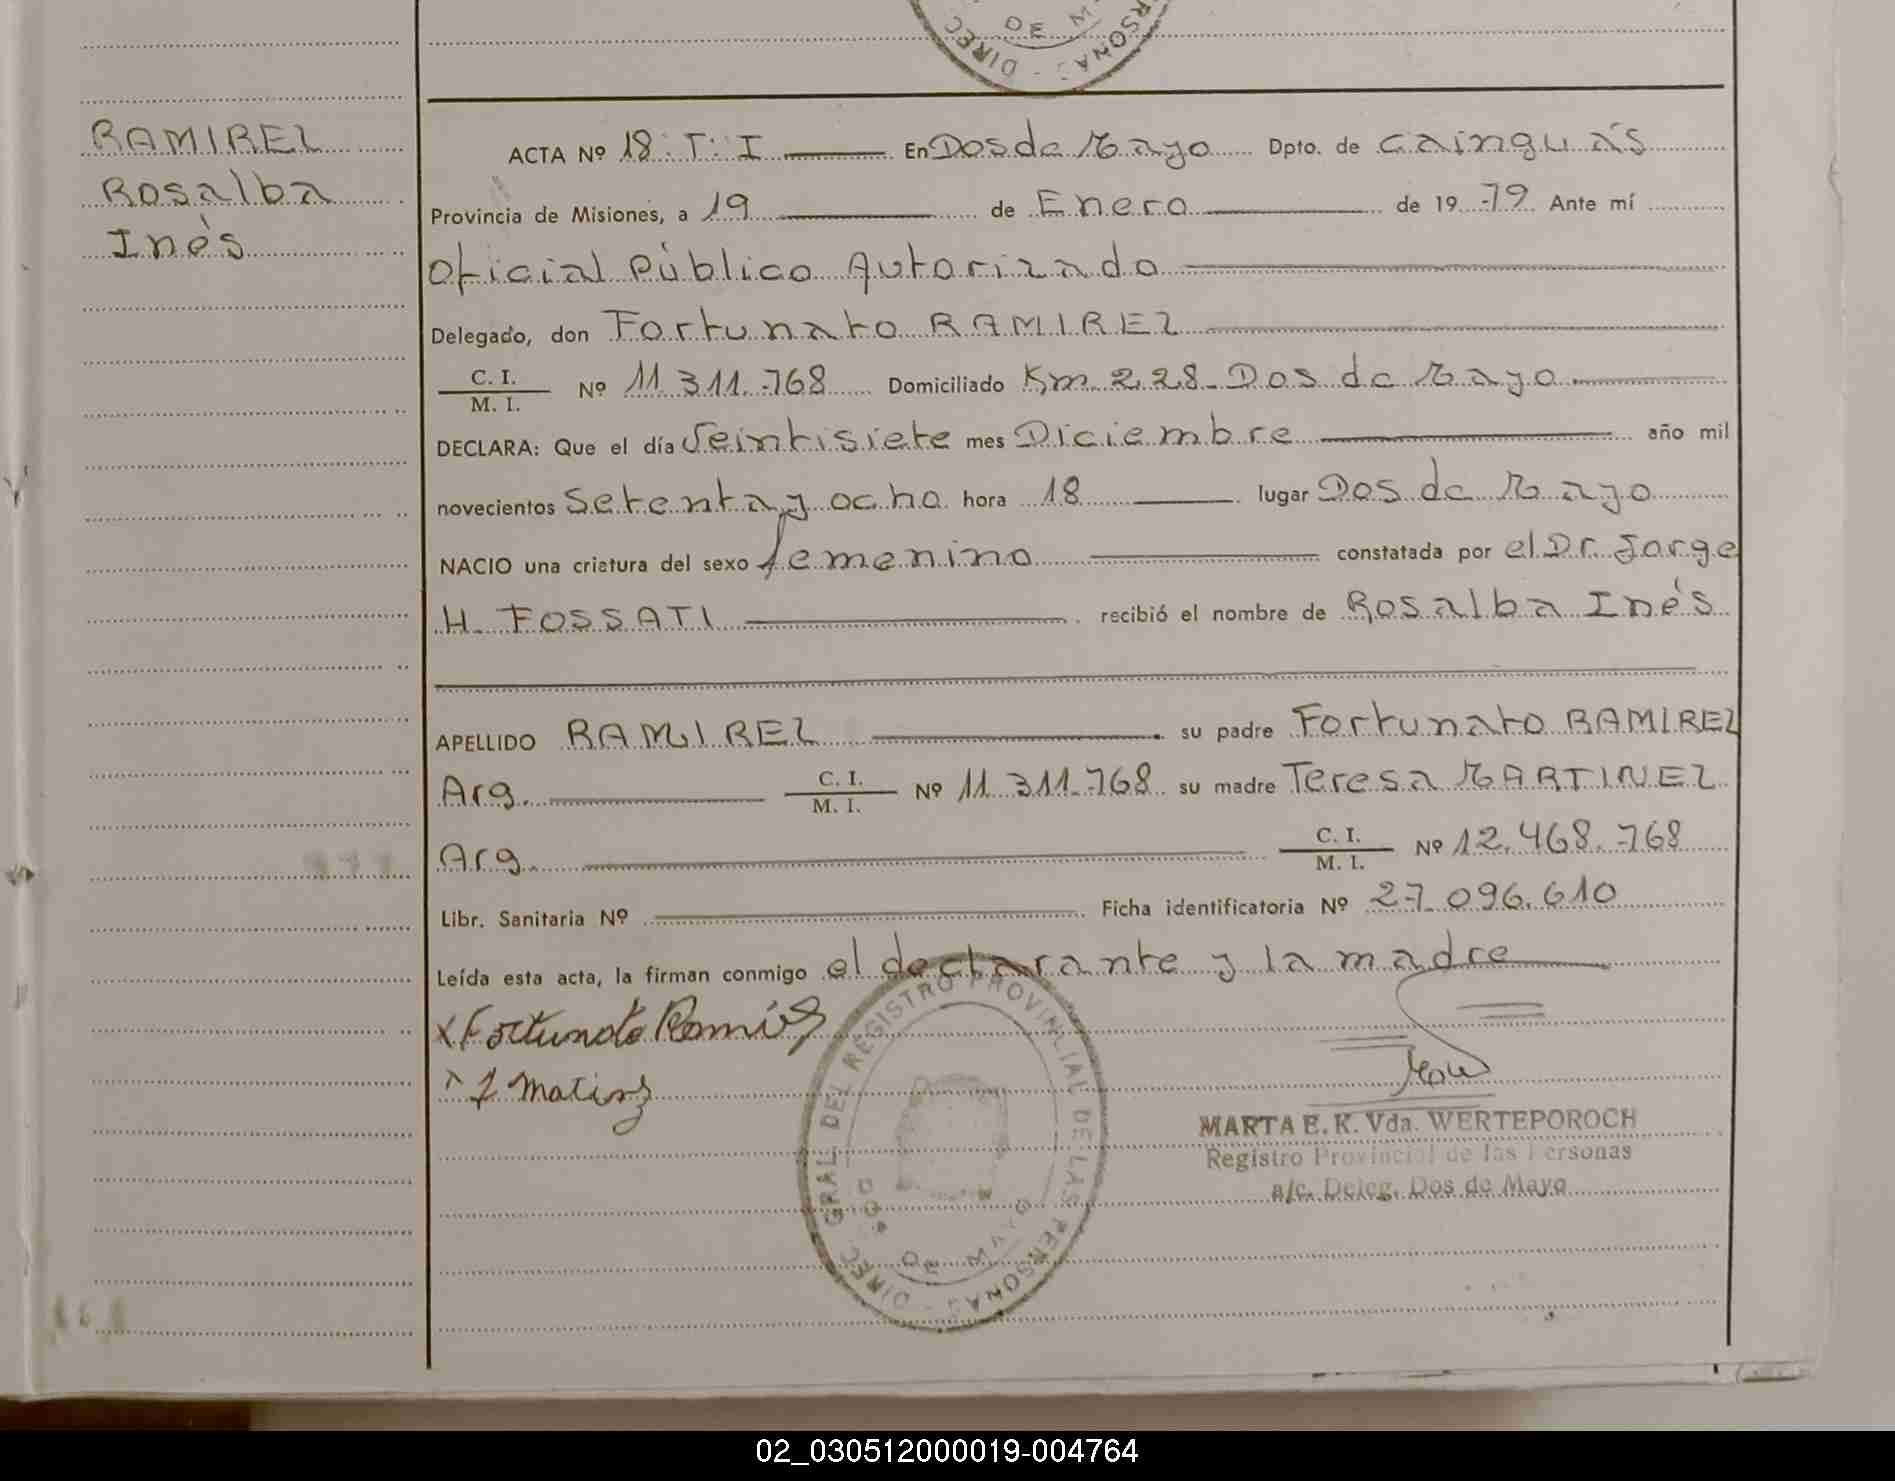 DIREC
DE M
PERSONAS
RAMIREZ
Rosalba
Inés
ACTA Nº 18. T. I En Dos de Mayo Dpto. de Cainguás
Provincia de Misiones, a 19 de Enero de 19 79 Ante mí
Oficial Público Autorizado
Delegado, don Fortunato RAMIREZ
C. I.
M. I. Nº 11 311.768 Domiciliado Km 228 Dos de Mayo
DECLARA: Que el día Veintisiete mes Diciembre año mil
novecientos Setenta y ocho hora 18 lugar Dos de Mayo
NACIO una criatura del sexo femenino constatada por el Dr. Jorge
H. FOSSATI recibió el nombre de Rosalba Inés
APELLIDO RAMIREZ su padre Fortunato RAMIREZ
Arg. C. I.
M. I. Nº 11 311.768 su madre Teresa MARTINEZ
Arg. C. I.
M. I. Nº 12.468.768
Libr. Sanitaria Nº Ficha identificatoria Nº 27.096.610
Leída esta acta, la firman conmigo el declarante y la madre
x Fortunato Ramirez
DIREC. GRAL. DEL REGISTRO PROVINCIAL DE LAS PERSONAS
MARTA E. K. Vda. WERTEPOROCH
Registro Provincial de las Personas
a/c. Deleg. Dos de Mayo
02_030512000019-004764